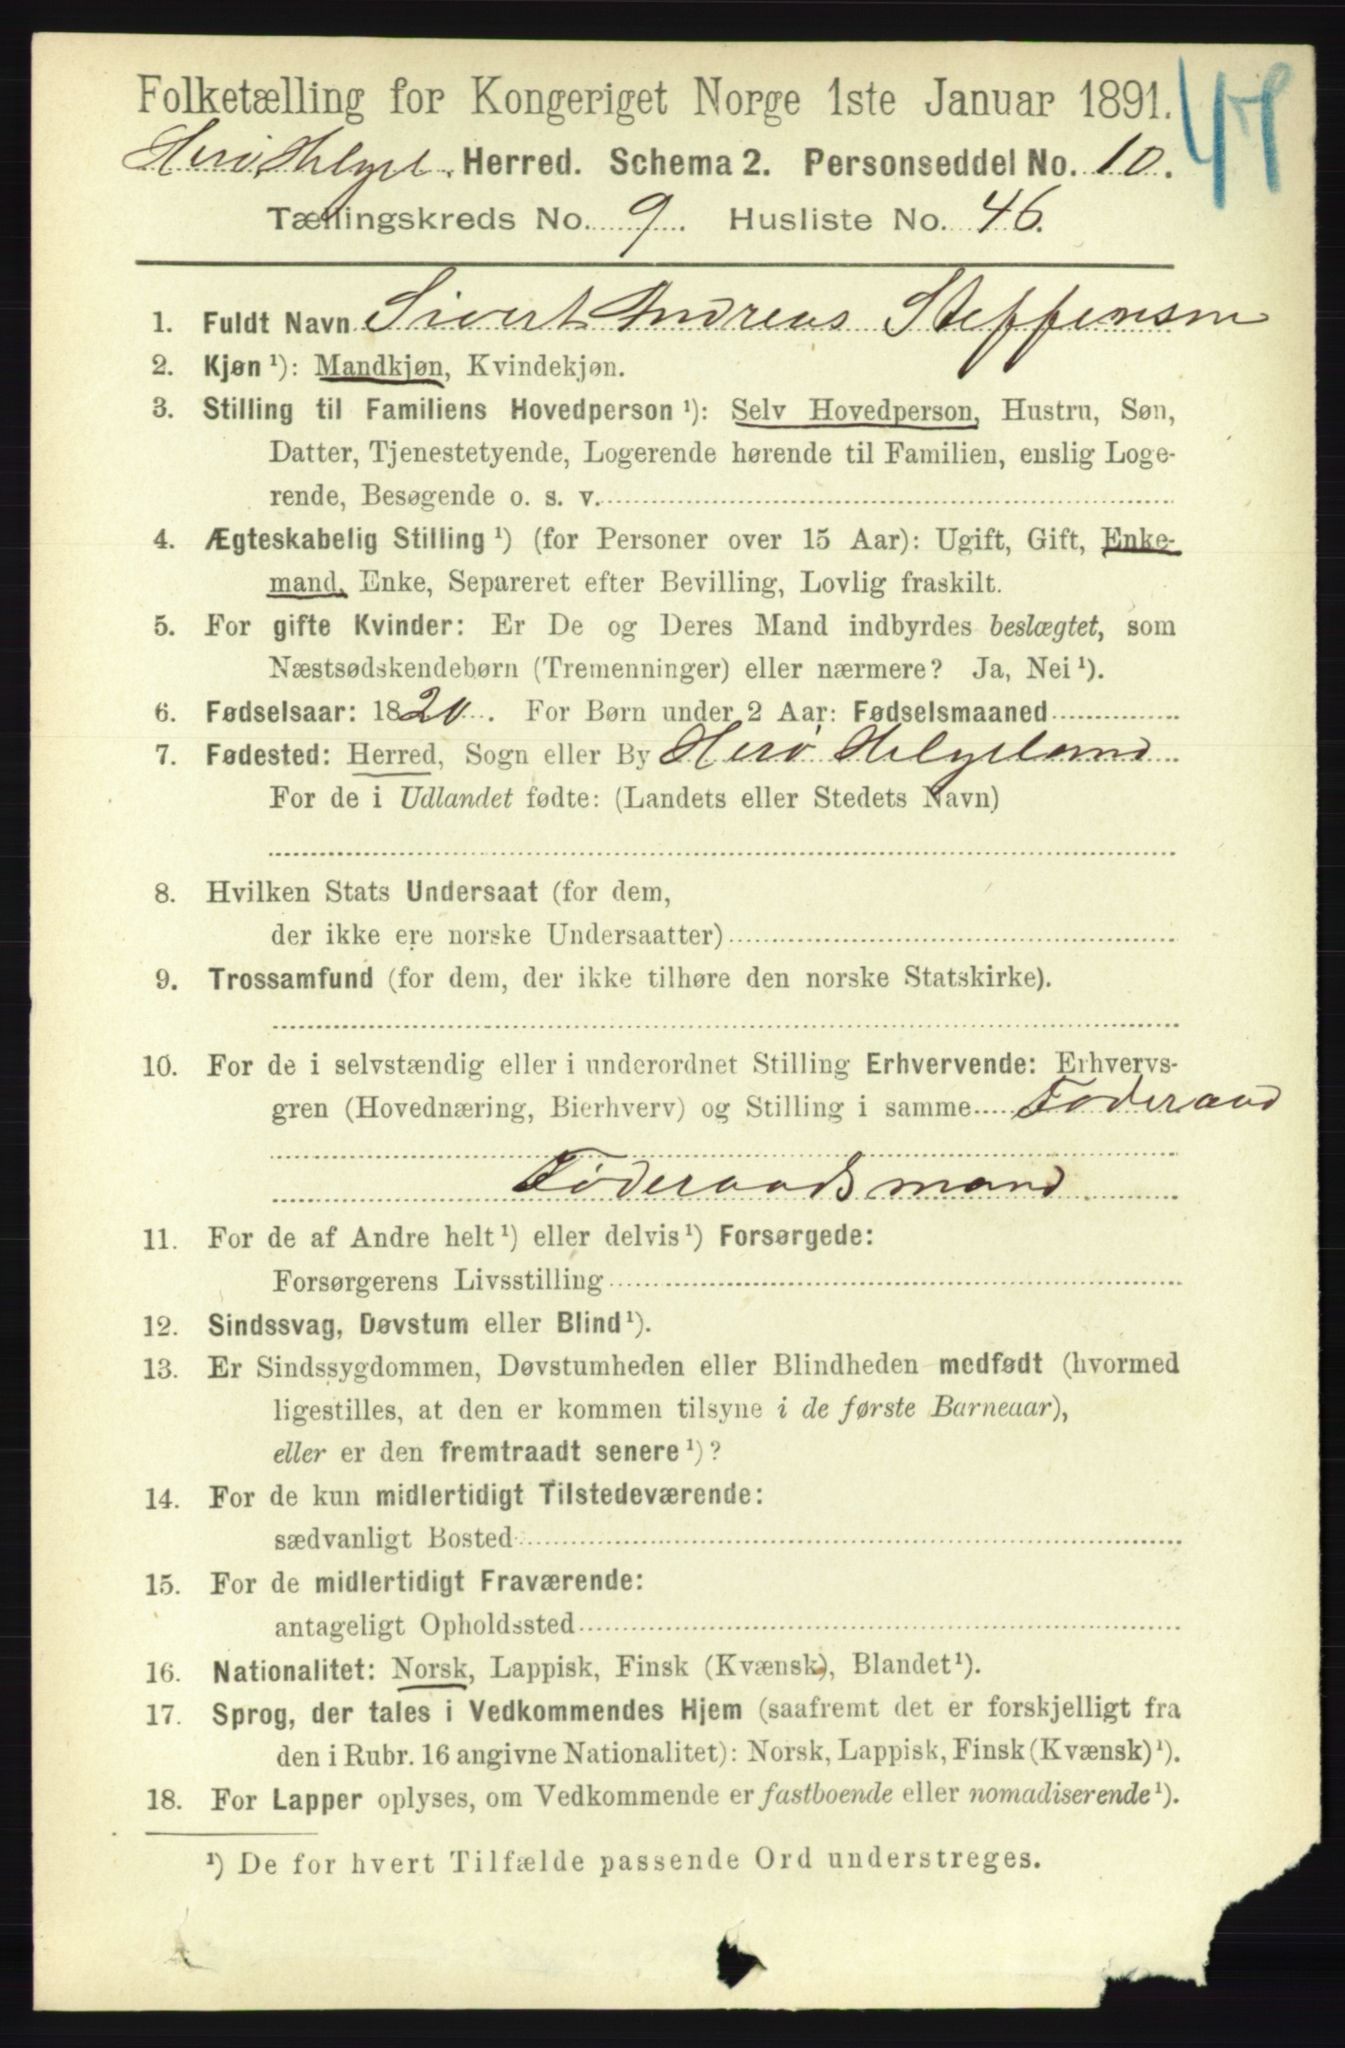 Folketælling for Kongeriget Norge 1ste Januar 1891.
47
Herø Helgel. Herred. Schema 2. Personseddel No. 10.
Tællingskreds No. 9. Husliste No. 46.
1. Fuldt Navn Sivert Andreas Steffensen
2. Kjøn ¹): Mandkjøn, Kvindekjøn.
3. Stilling til Familiens Hovedperson ¹): Selv Hovedperson, Hustru, Søn,
Datter, Tjenestetyende, Logerende hørende til Familien, enslig Loge-
rende, Besøgende o. s. v.
4. Ægteskabelig Stilling ¹) (for Personer over 15 Aar): Ugift, Gift, Enke-
mand, Enke, Separeret efter Bevilling, Lovlig fraskilt.
5. For gifte Kvinder: Er De og Deres Mand indbyrdes beslægtet, som
Næstsødskendebørn (Tremenninger) eller nærmere? Ja, Nei ¹).
6. Fødselsaar: 1820. For Børn under 2 Aar: Fødselsmaaned
7. Fødested: Herred, Sogn eller By Herø Helgeland
For de i Udlandet fødte: (Landets eller Stedets Navn)
8. Hvilken Stats Undersaat (for dem,
der ikke ere norske Undersaatter)
9. Trossamfund (for dem, der ikke tilhøre den norske Statskirke).
10. For de i selvstændig eller i underordnet Stilling Erhvervende: Erhvervs-
gren (Hovednæring, Bierhverv) og Stilling i samme Føderaad
Føderaadsmand
11. For de af Andre helt ¹) eller delvis ¹) Forsørgede:
Forsørgerens Livsstilling
12. Sindssvag, Døvstum eller Blind ¹).
13. Er Sindssygdommen, Døvstumheden eller Blindheden medfødt (hvormed
ligestilles, at den er kommen tilsyne i de første Barneaar),
eller er den fremtraadt senere ¹)?
14. For de kun midlertidigt Tilstedeværende:
sædvanligt Bosted
15. For de midlertidigt Fraværende:
antageligt Opholdssted
16. Nationalitet: Norsk, Lappisk, Finsk (Kvænsk), Blandet ¹).
17. Sprog, der tales i Vedkommendes Hjem (saafremt det er forskjelligt fra
den i Rubr. 16 angivne Nationalitet): Norsk, Lappisk, Finsk (Kvænsk) ¹).
18. For Lapper oplyses, om Vedkommende er fastboende eller nomadiserende ¹).
¹) De for hvert Tilfælde passende Ord understreges.